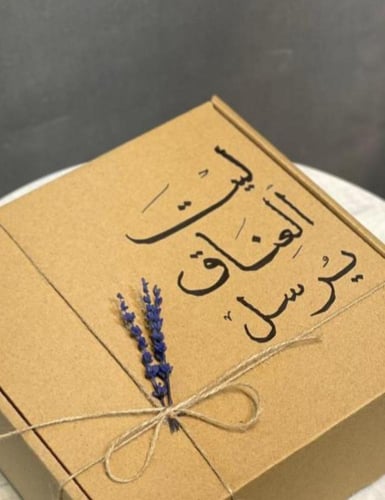 ليت
العناق
يُرسل